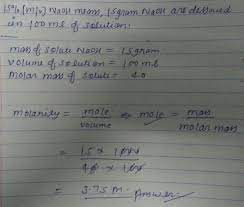 15% [m/v] NaOH means, 15gram NaOH are dissolved
in 100 ml of solution.
mass of solute NaOH = 15gram
volume of solution = 100 ml
molar mass of solute = 40
molarity = mole/volume ⇒ mole = mass/molar mass
= 15 × 1000/40 × 100
= 3.75 M. Answer.